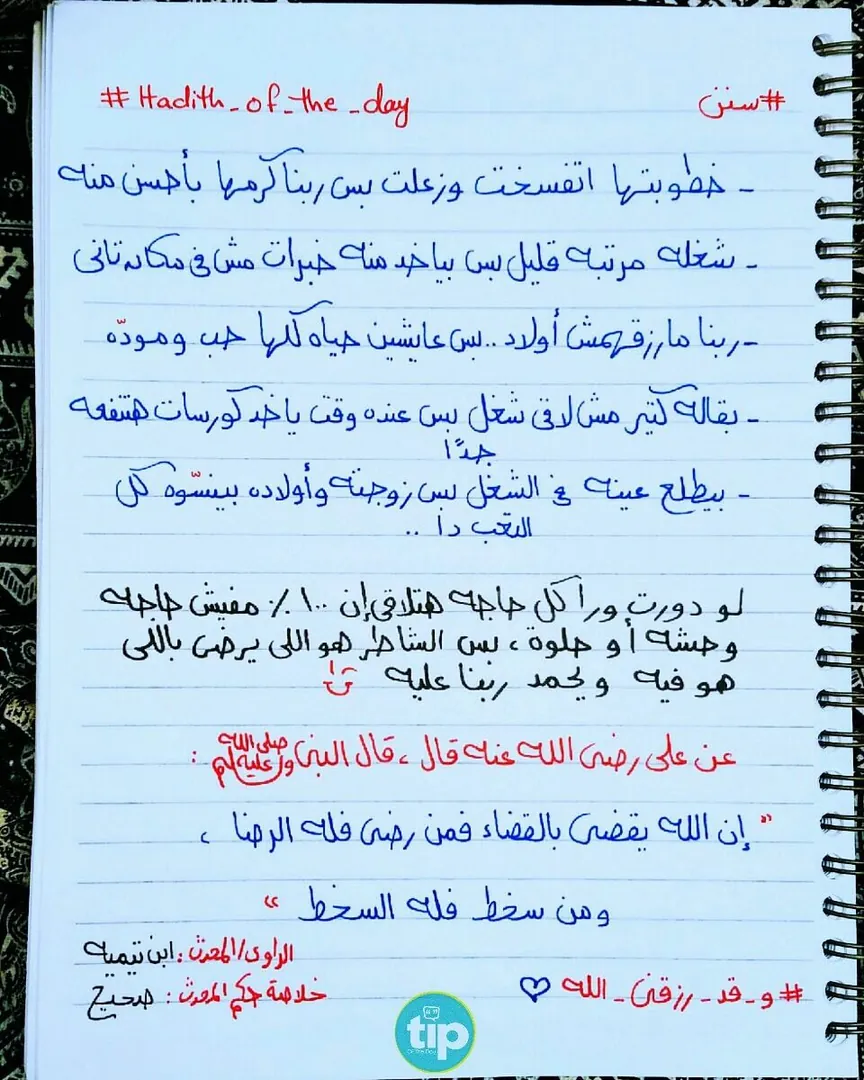 #سنن
# Hadith_of_the_day
- خطوبتها اتفسخت وزعلت بس ربنا كرمها بأحسن منه
- شغله مرتبه قليل بس بياخد منه خبرات مش فى مكان تانى
- ربنا مارزقهمش أولاد .. بس عايشين حياه كلها حب ومودّه
- بقاله كتير مش لاقى شغل بس عنده وقت ياخد كورسات هتنفعه
جدًا
- بيطلع عينه فى الشغل بس زوجته وأولاده بينسّوه كل
التعب دا ..
لو دورت ورا كل حاجه هتلاقى إن ١٠٠٪ مفيش حاجه
وحشه أو حلوة ، بس الشاطر هو اللى يرضى باللى
هو فيه ويحمد ربنا عليه
عن على رضى الله عنه قال ، قال النبى صلى الله عليه وسلم :
" إن الله يقضى بالقضاء فمن رضى فله الرضا ،
ومن سخط فله السخط "
الراوى/المحدث : ابن تيميه
خلاصة حكم المحدث : صحيح
#و_قد_رزقنى_الله ♡
tip